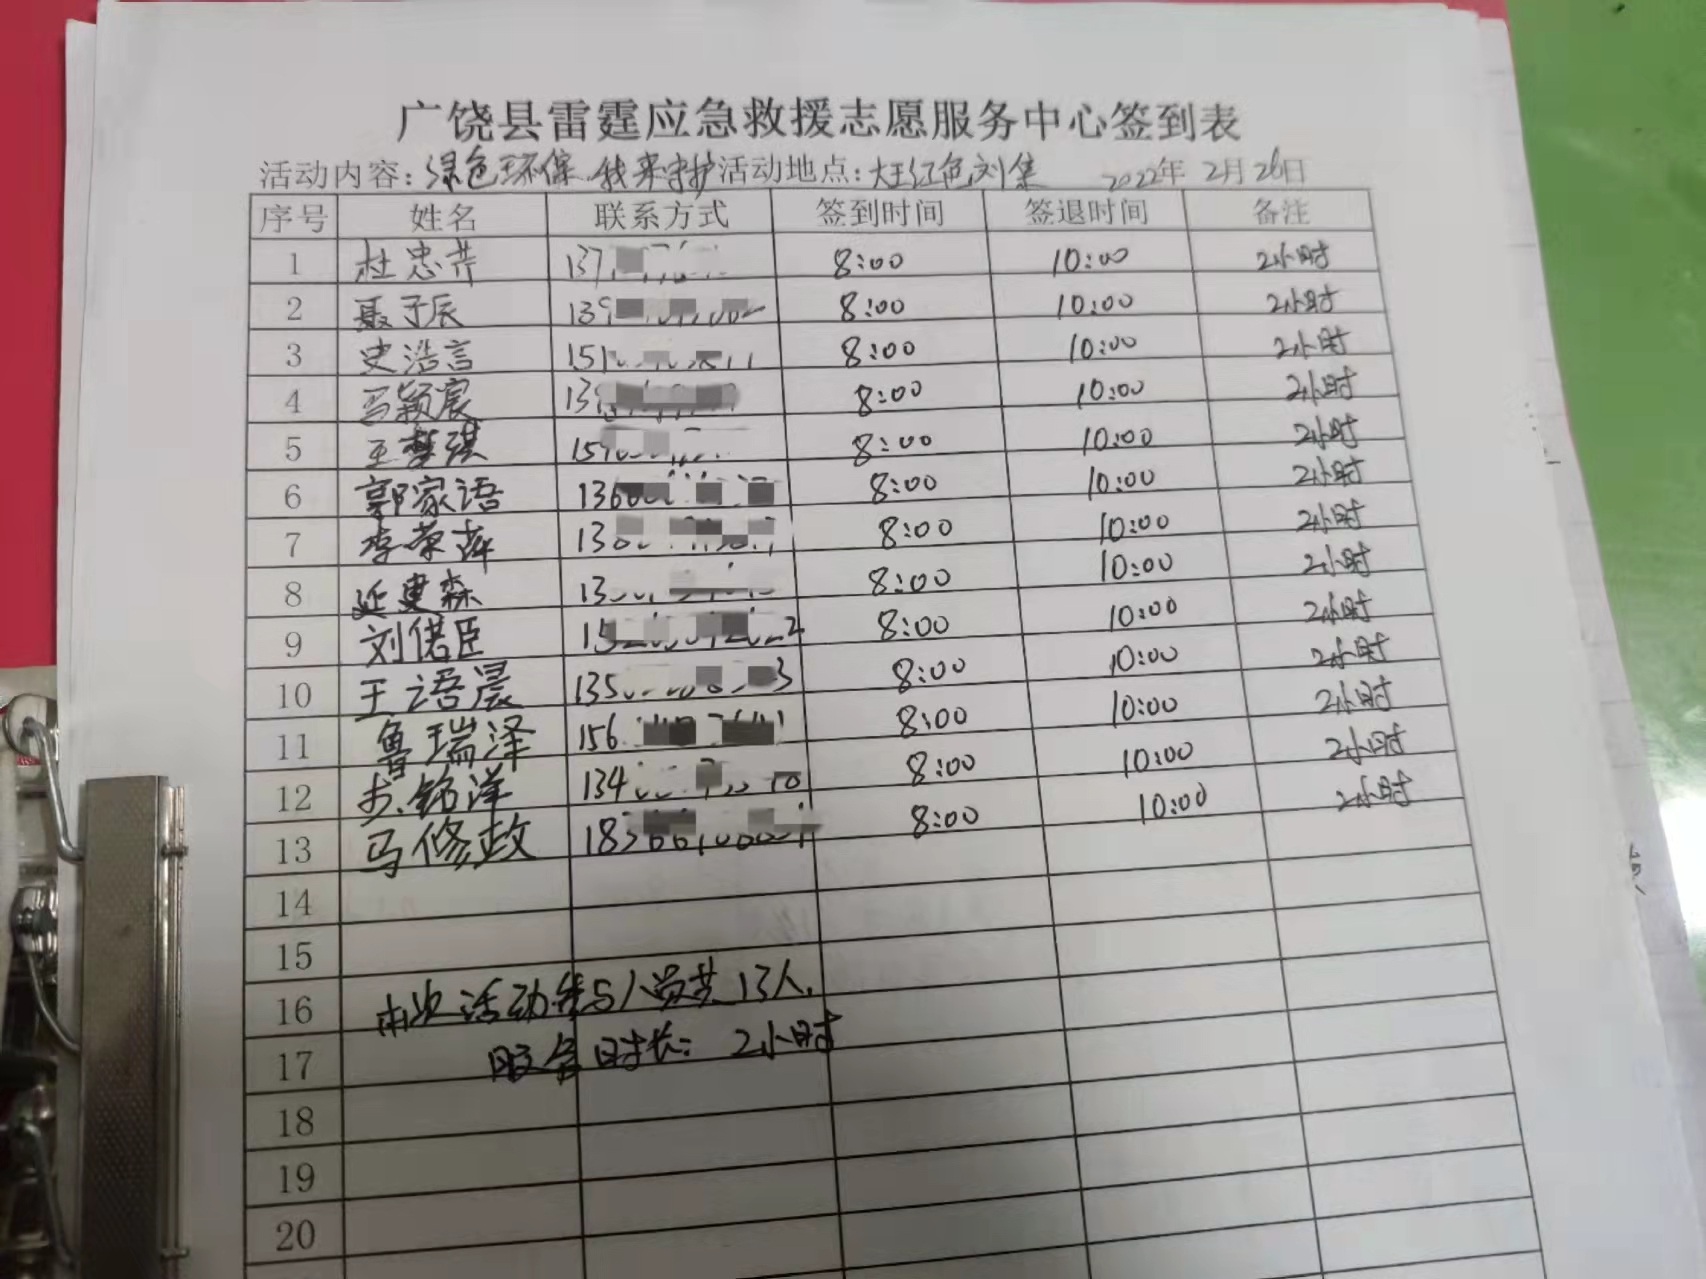 广饶县雷霆应急救援志愿服务中心签到表
活动内容：绿色环保 我来守护 活动地点：大王红色刘集 2022年2月26日
序号 姓名 联系方式 签到时间 签退时间 备注
1 杜忠芹 137 8:00 10:00 2小时
2 聂子辰 139 8:00 10:00 2小时
3 史浩言 151 8:00 10:00 2小时
4 马颖宸 13 8:00 10:00 2小时
5 王梦琪 159 8:00 10:00 2小时
6 郭家语 136 8:00 10:00 2小时
7 李荣萍 13 8:00 10:00 2小时
8 延建森 13 8:00 10:00 2小时
9 刘偌臣 15 8:00 10:00 2小时
10 王语晨 135 8:00 10:00 2小时
11 鲁瑞泽 156 8:00 10:00 2小时
12 铭洋 134 8:00 10:00 2小时
13 马修政 183 8:00 10:00 2小时
14
15
16 本次活动参与人员共13人，
17 服务时长：2小时
18
19
20